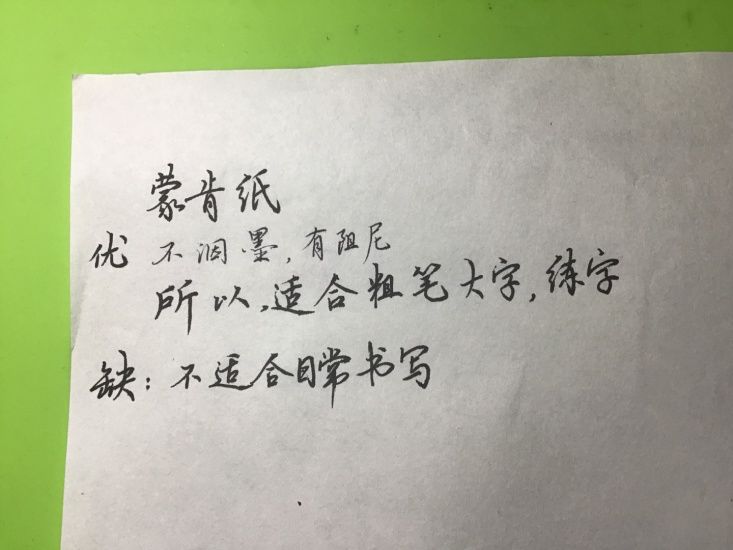 蒙肯纸
优 不洇墨，有阻尼
所以，适合粗笔大字，练字
缺：不适合日常书写